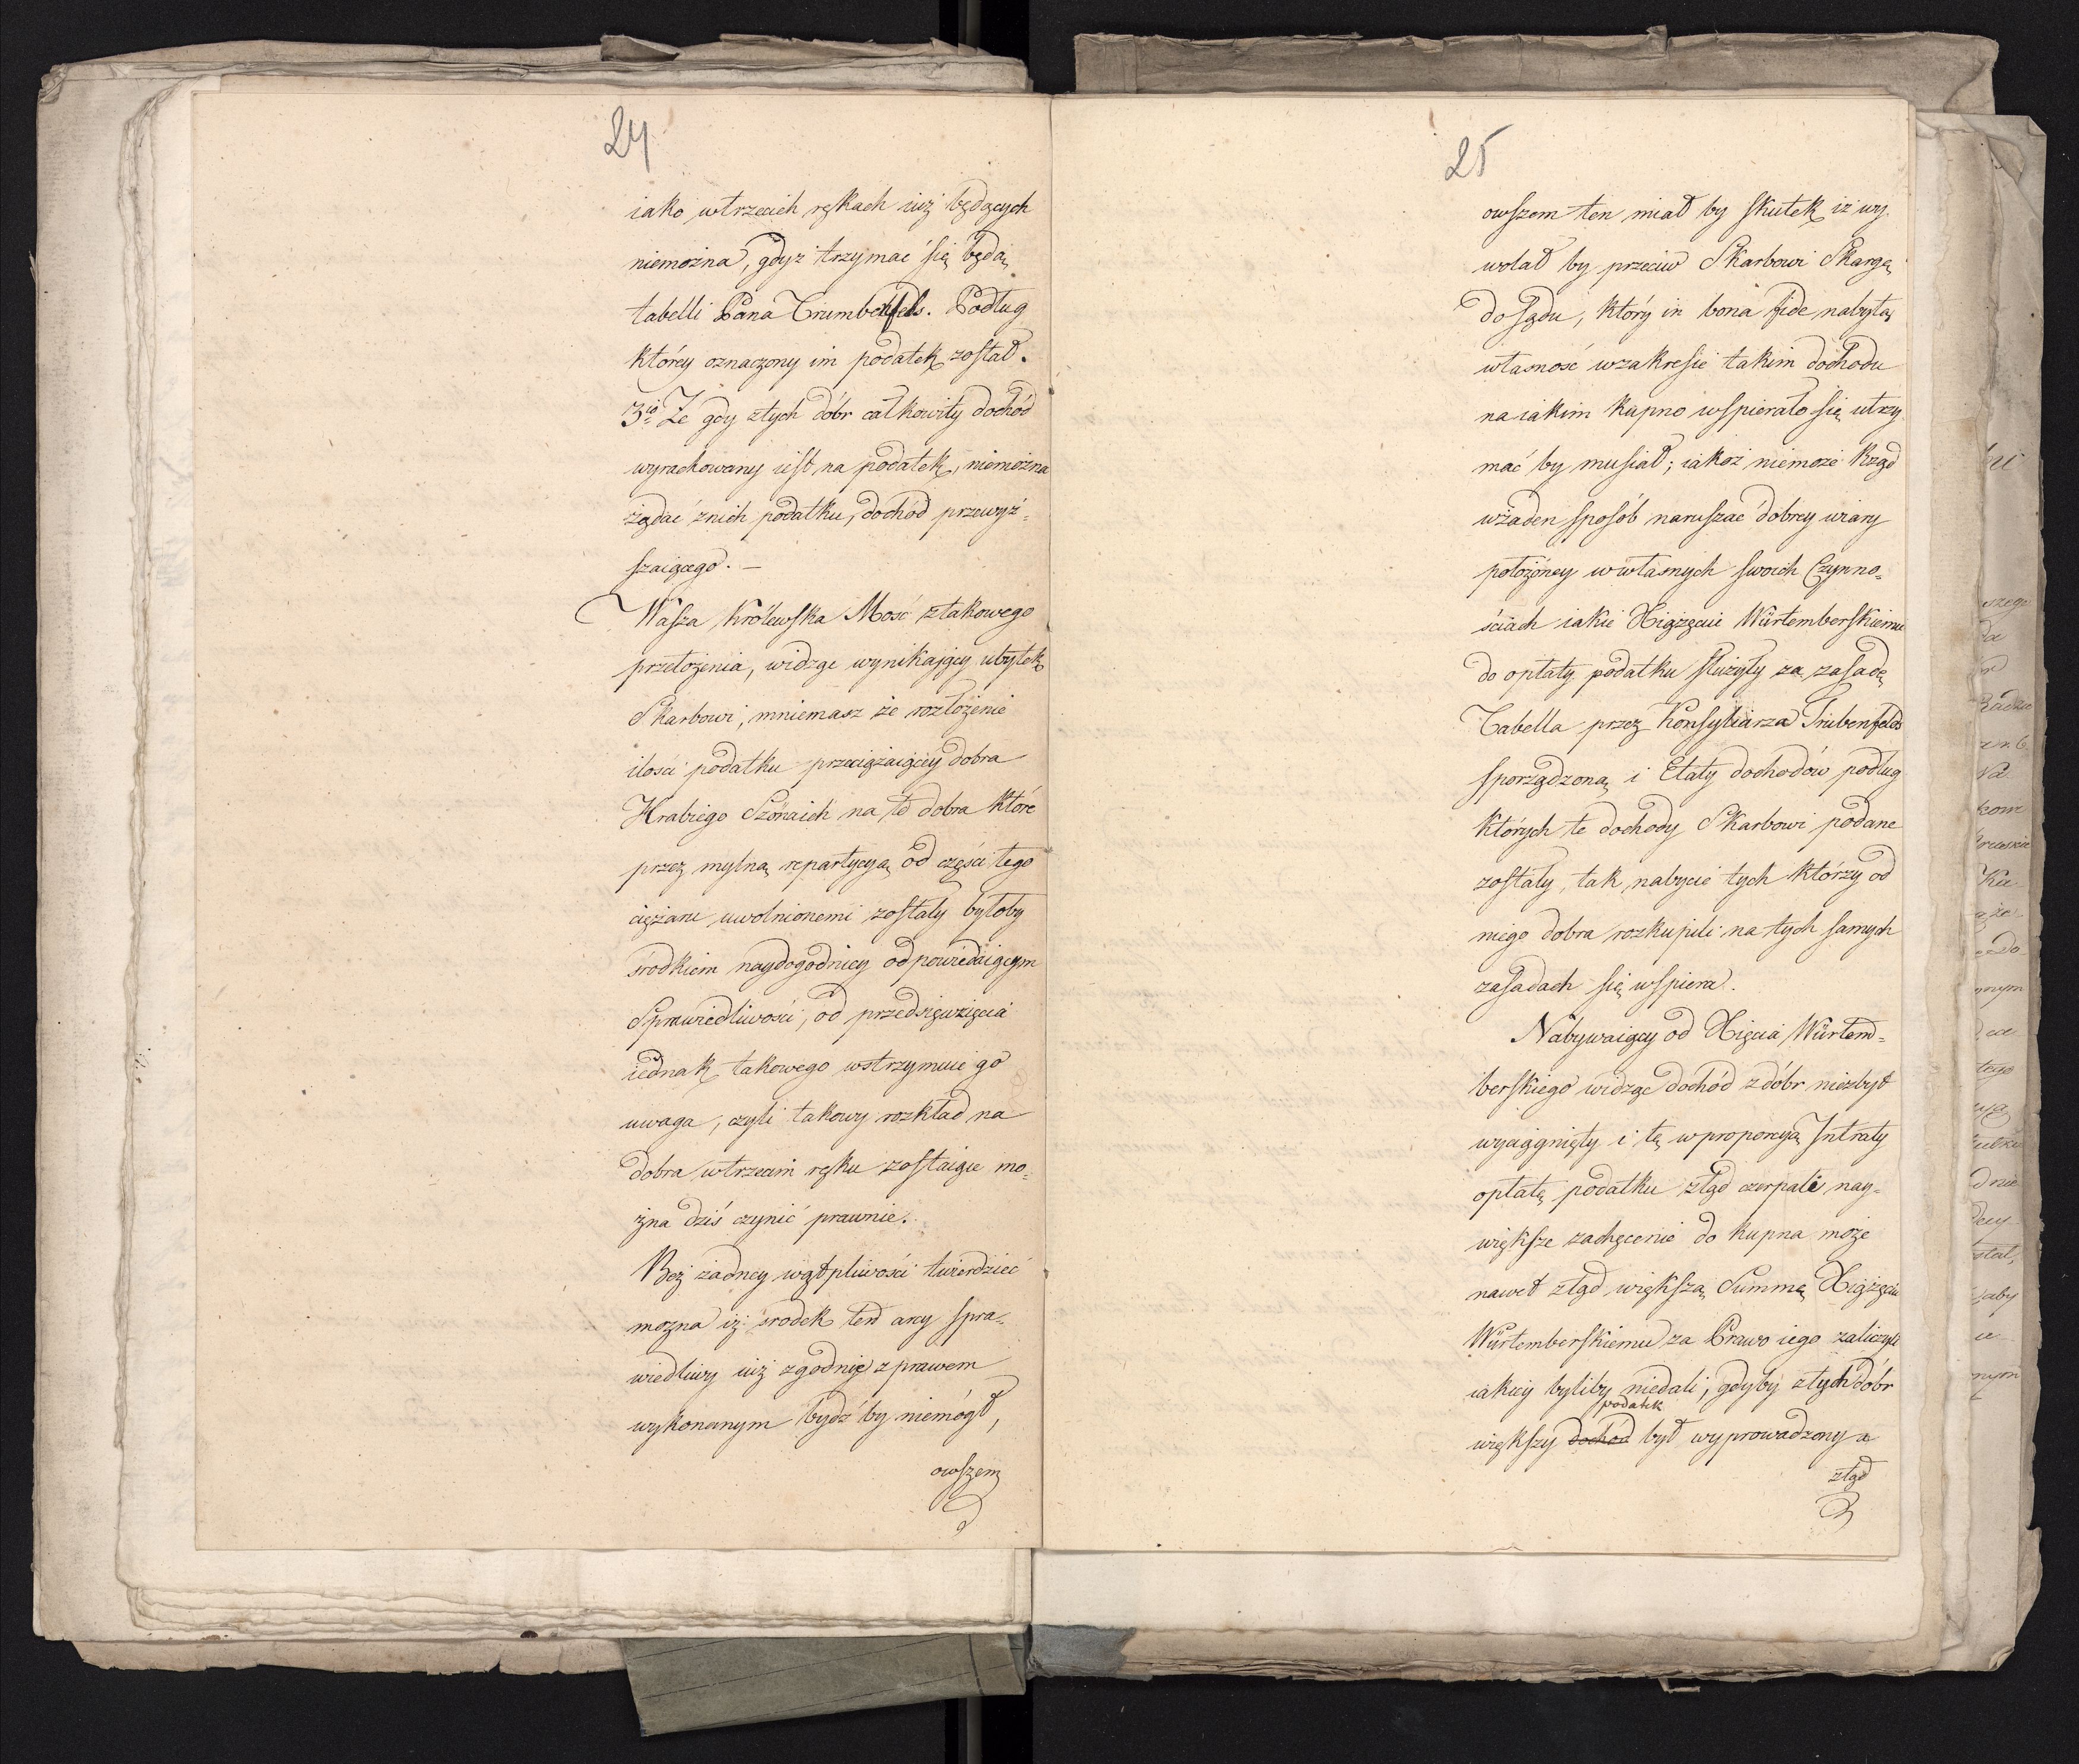 24
iako wtrzecich rękach iuż będących
niemożna, gdyż trzymać się będą
tabelli Pana Trumbenfels. Podług
którey oznaczony im podatek został.
3cio Ze gdy ztych dóbr całkowity dochód
wyrachowany iest na podatek, niemożna
żądać znich podatku, dochód przewyż-
szaiącego. —
Wasza Królewska Mość ztakowego
przełożenia, widząc wynikający ubytek
Skarbowi, mniemasz że rozłożenie
ilości podatku przeciążaiącey dobra
Hrabiego Szönaich na te dobra które
przez mylną repartycyą od części tego
ciężaru uwolnionemi zostały byłoby
środkiem naydogodniey odpowiedaiącym
Sprawiedliwości, od przedsięwzięcia
iednak takowego wstrzymuie go
uwaga, czyli takowy rozkład na
dobra wtrzecim ręku zostaiące mo-
żna dziś czynić prawnie.
Bez żadney wątpliwości twierdzieć
mozna iż srodek ten arcy spra-
wiedliwy iuż zgodnie z prawem
wykonanym bydź by niemógł,
owszem
25
owszem ten miał by skutek iż wy
wołał by przeciw Skarbowi Skargę
do sądu, który in bona fide nabytą
własność wzakresie takim dochodu
na iakim kupno wspierało się utrzy
mać by musiał; iakoż niemoże Rząd
wżaden sposób naruszać dobrey wiary
położoney wwłasnych swoich Czynno-
ściach iakie Xiążęcie Würtemberskiemu
do opłaty podatku służyły za zasadę
Tabella przez Konsyliarza Trübenfelds
sporządzoną i Etaty dochodów podług
których te dochody Skarbowi podane
zostały, tak nabycie tych którzy od
niego dobra rozkupili na tych samych
zasadach się wspiera.
Nabywaiący od Xięcia Würtem-
berskiego widząc dochód z dóbr niezbyt
wyciągnięty i tę wproporcyą Intraty
opłatę podatku ztąd czerpali nay-
większe zachęcenie do kupna może
nawet ztąd większą Summę Xiążęciu
Würtemberskiemu za Prawo iego zaliczyli
iakiey byliby niedali, gdyby ztych dóbr
podatek
większy dochód był wyprowadzony a
ztąd